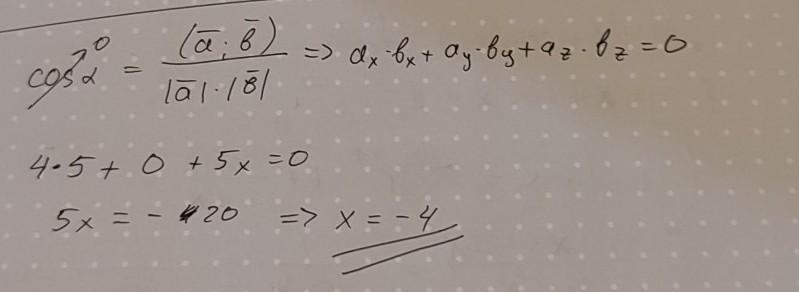 cos α ↗ 0 = (a̅ ; b̅) / |a̅| · |b̅| => aₓ · bₓ + a_y · b_y + a_z · b_z = 0
4 · 5 + 0 + 5x = 0
5x = - 20 => x = - 4